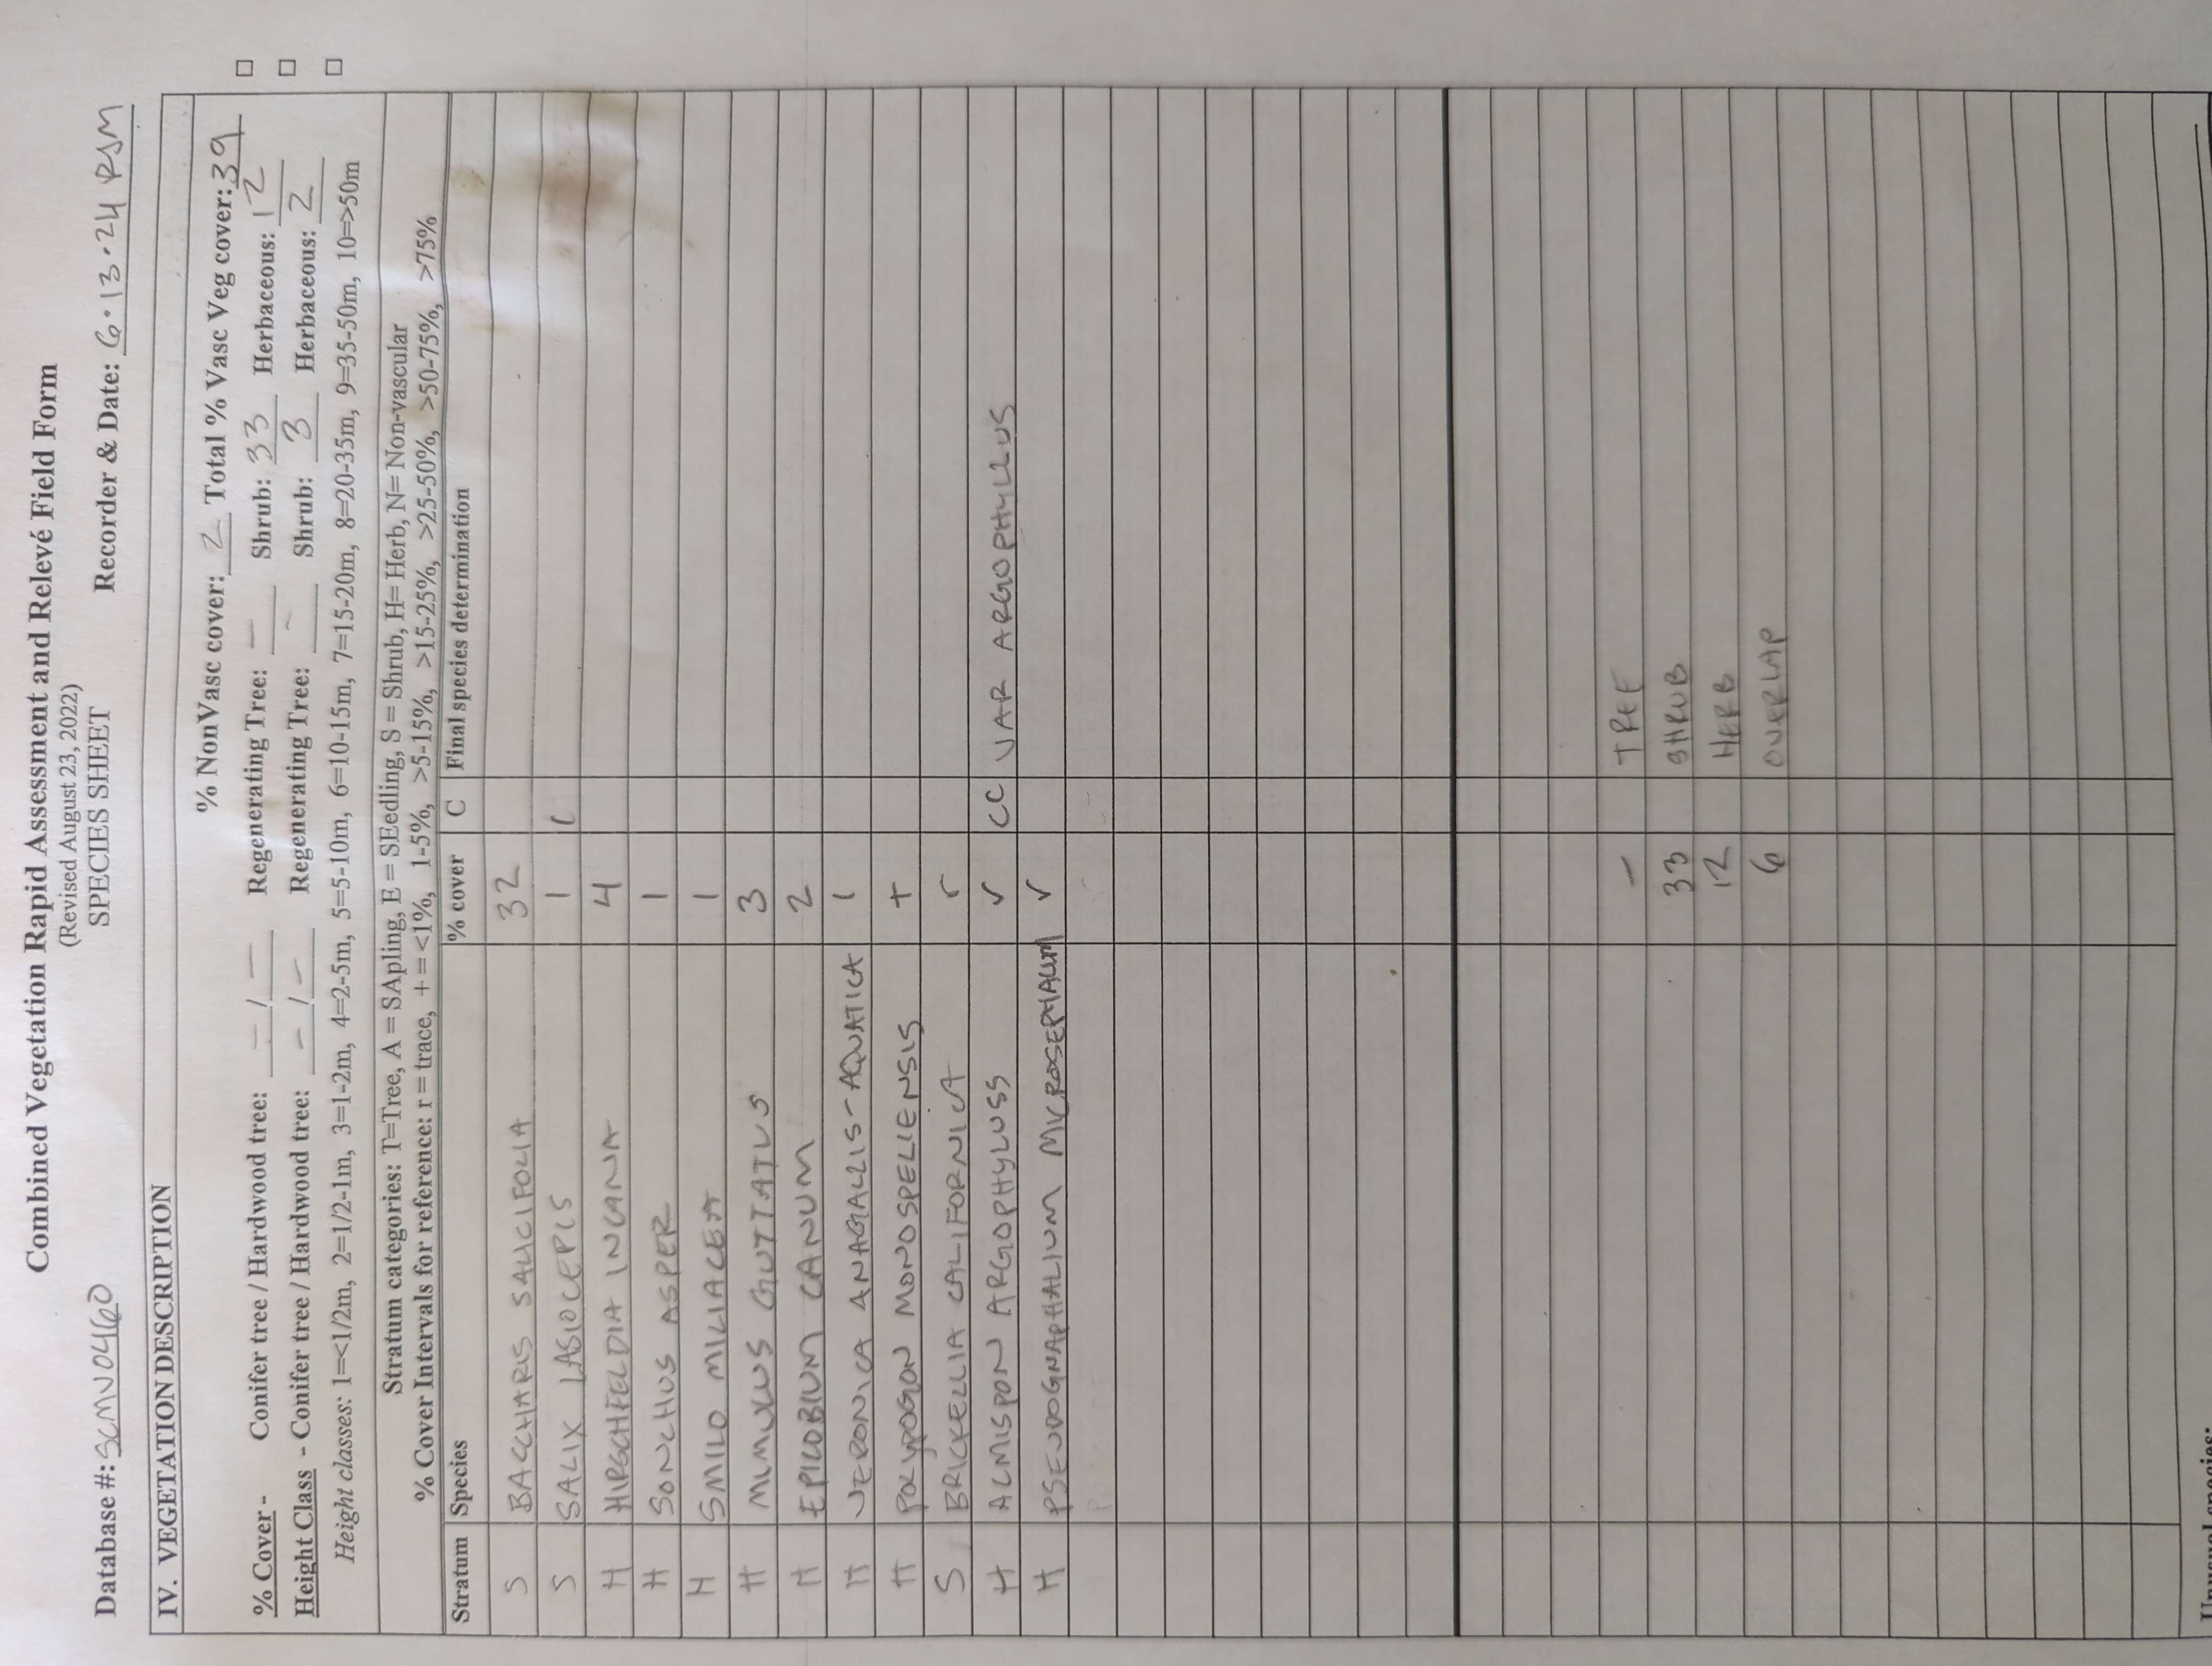 Combined Vegetation Rapid Assessment and Relevé Field Form
(Revised August 23, 2022)
SPECIES SHEET
Database #: SCMV0460 Recorder & Date: 6.13.24 RSM
IV. VEGETATION DESCRIPTION
% NonVasc cover: 2 Total % Vasc Veg cover: 39
% Cover - Conifer tree / Hardwood tree: – / – Regenerating Tree: – Shrub: 33 Herbaceous: 12 □
Height Class - Conifer tree / Hardwood tree: – / – Regenerating Tree: – Shrub: 3 Herbaceous: 2 □
Height classes: 1=<1/2m, 2=1/2-1m, 3=1-2m, 4=2-5m, 5=5-10m, 6=10-15m, 7=15-20m, 8=20-35m, 9=35-50m, 10=>50m □
Stratum categories: T=Tree, A = SApling, E = SEedling, S = Shrub, H= Herb, N= Non-vascular
% Cover Intervals for reference: r = trace, + = <1%, 1-5%, >5-15%, >15-25%, >25-50%, >50-75%, >75%
Stratum Species % cover C Final species determination
S BACCHARIS SALICIFOLIA 32
S SALIX LASIOCEPIS 1 C
H HIRSCHFELDIA INCANA 4
H SONCHUS ASPER 1
H SMILO MILIACEA 1
H MIMULUS GUTTATUS 3
H EPILOBIUM CANUM 2
H VERONICA ANAGALLIS-AQUATICA 1
H POLYPOGON MONOSPELIENSIS +
S BRICKELLIA CALIFORNICA r
H ACMISPON ARGOPHYLUSS r CC VAR ARGOPHYLLUS
H PSEUDOGNAPHALIUM MICROSEPHALUM r
– TREE
33 SHRUB
12 HERB
6 OVERLAP
Unusual species: